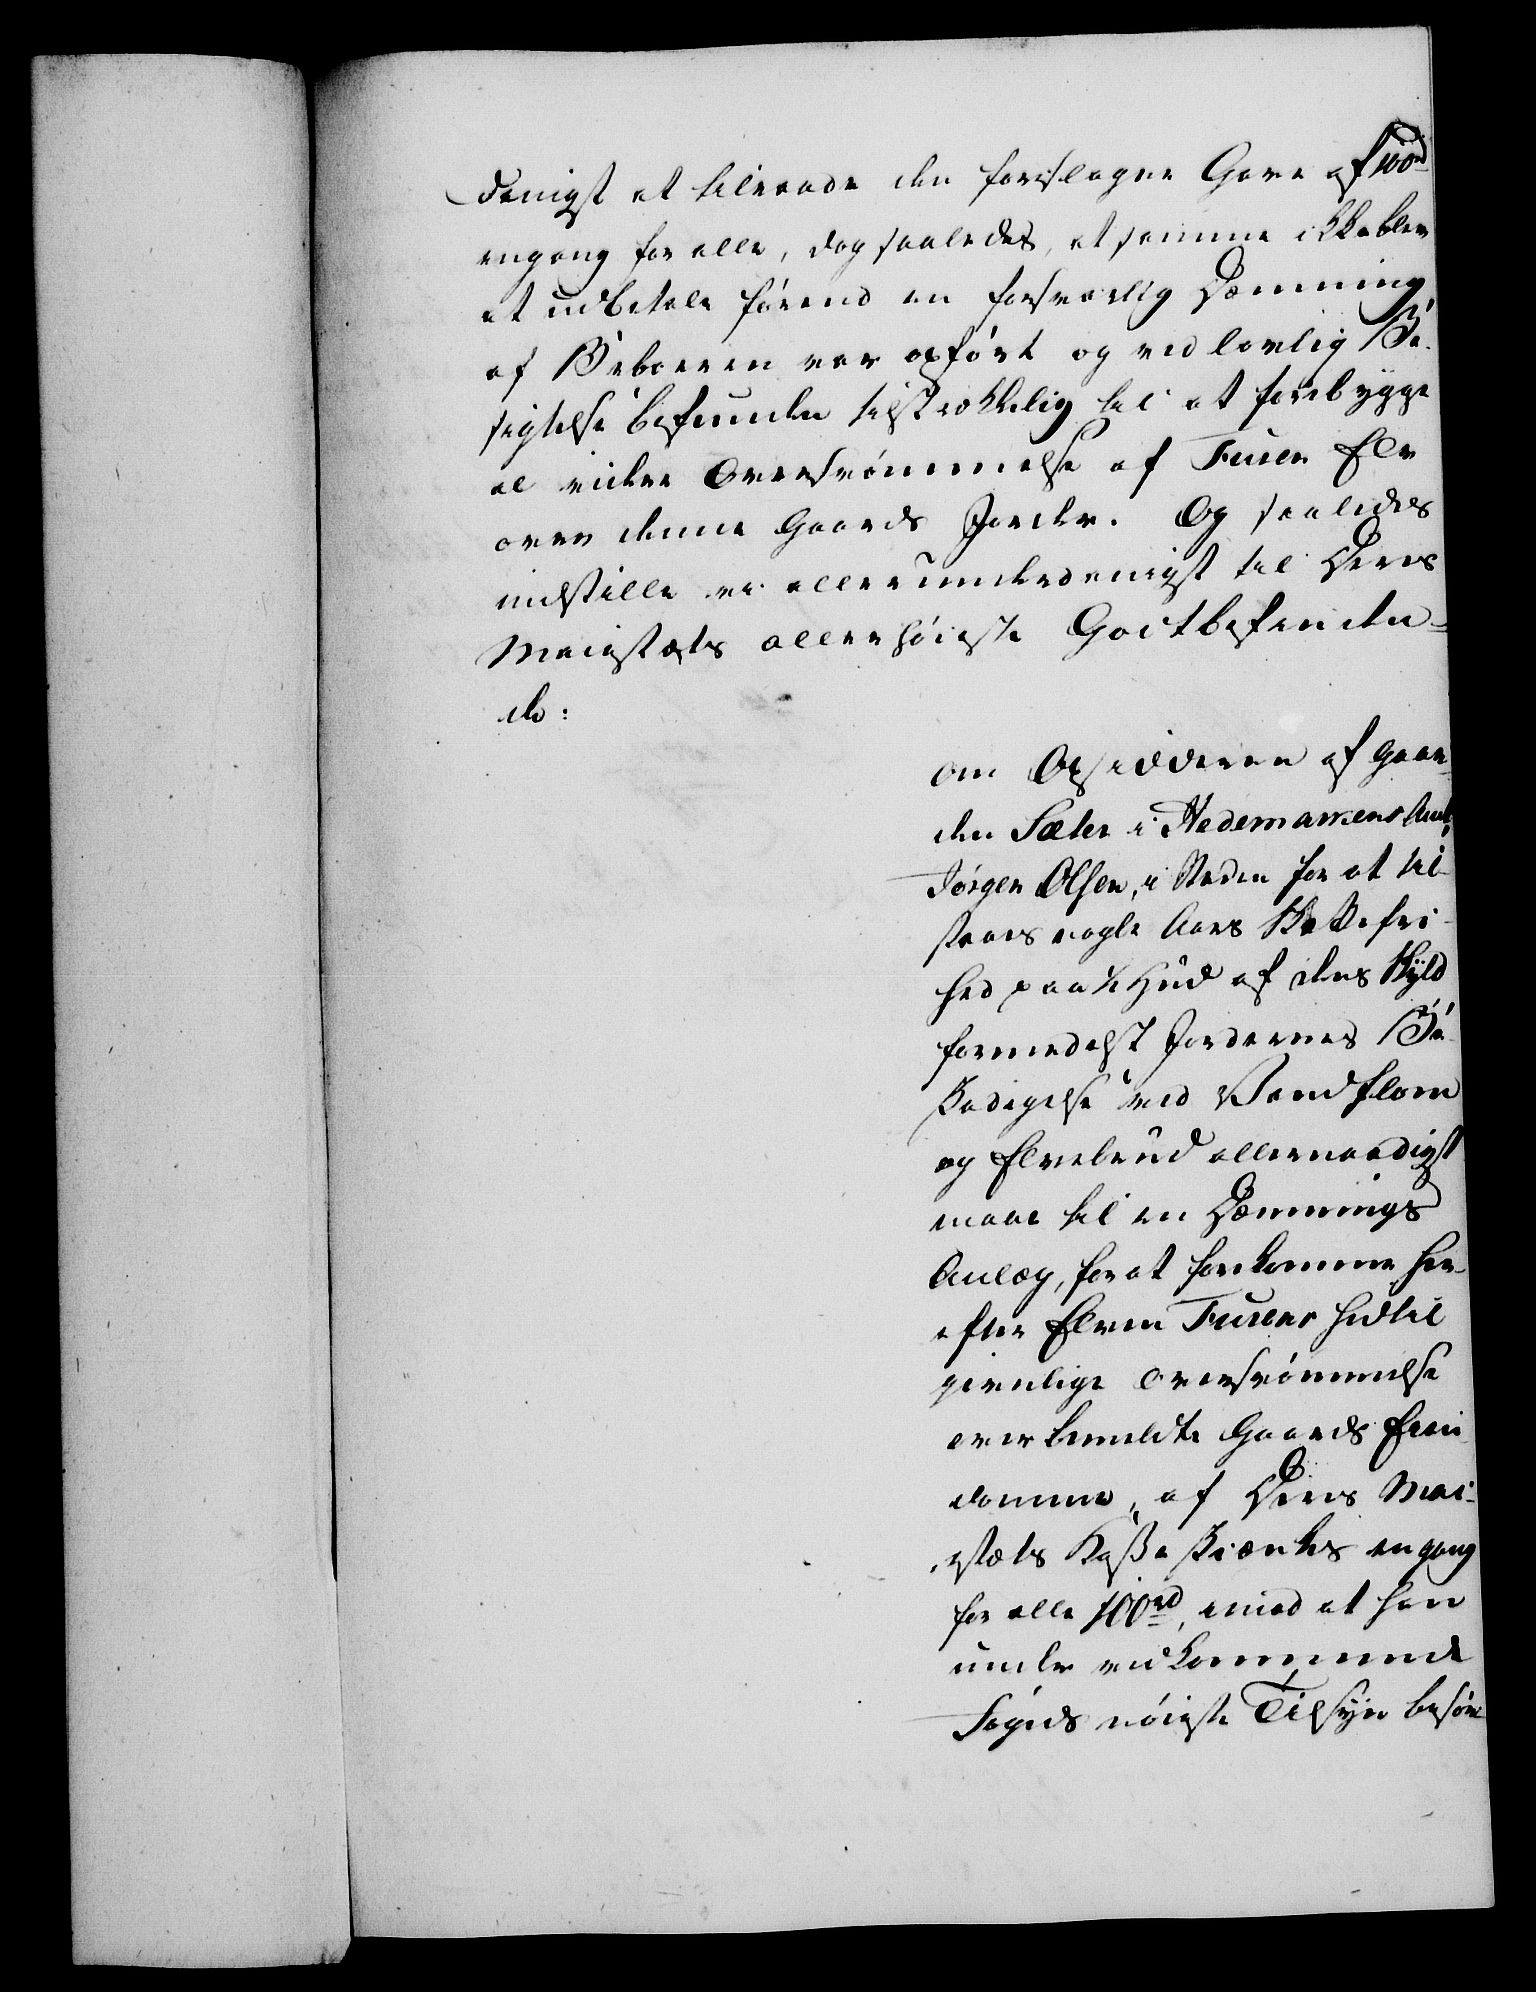 danigst at tilraade den foreslagne Gave af 100rd
engang for alle, dog saaledes, at samme ikke blev
at udbetale førend en forsvarlig Dæmning
af Beboeren var opført og ved lovlig Be-
sigtelse befunden tilstrækkelig til at forebygge
al videre Oversvømmelse af Fuuen Elv
over denne Gaards Jorder. Og saaledes
indstille vi allerunderdanigst til Deres
Majestæts allerhøieste Godtbefinden-
de:
om Opsidderen af Gaar-
den Sæter i Hedemarkens Amt,
Jørgen Olsen, i Steden for at til-
staaes nogle Aars Skattefri-
hed paa ½ Hud af dens Skyld
formedelst Jordernes Be-
skadigelse ved Vandflom
og Elvebrud allernaadigst
maae til en Dæmnings
Anlæg, for at forekomme her-
efter Elven Fuuens hidtil
jevnlige Oversvømmelse
over bemeldte Gaards Eien-
domme, af Deres Maj-
estæts Kasse skienkes engang
for alle 100rd, imod at han
under vedkommende
Fogeds nøieste Tilsyn besør-